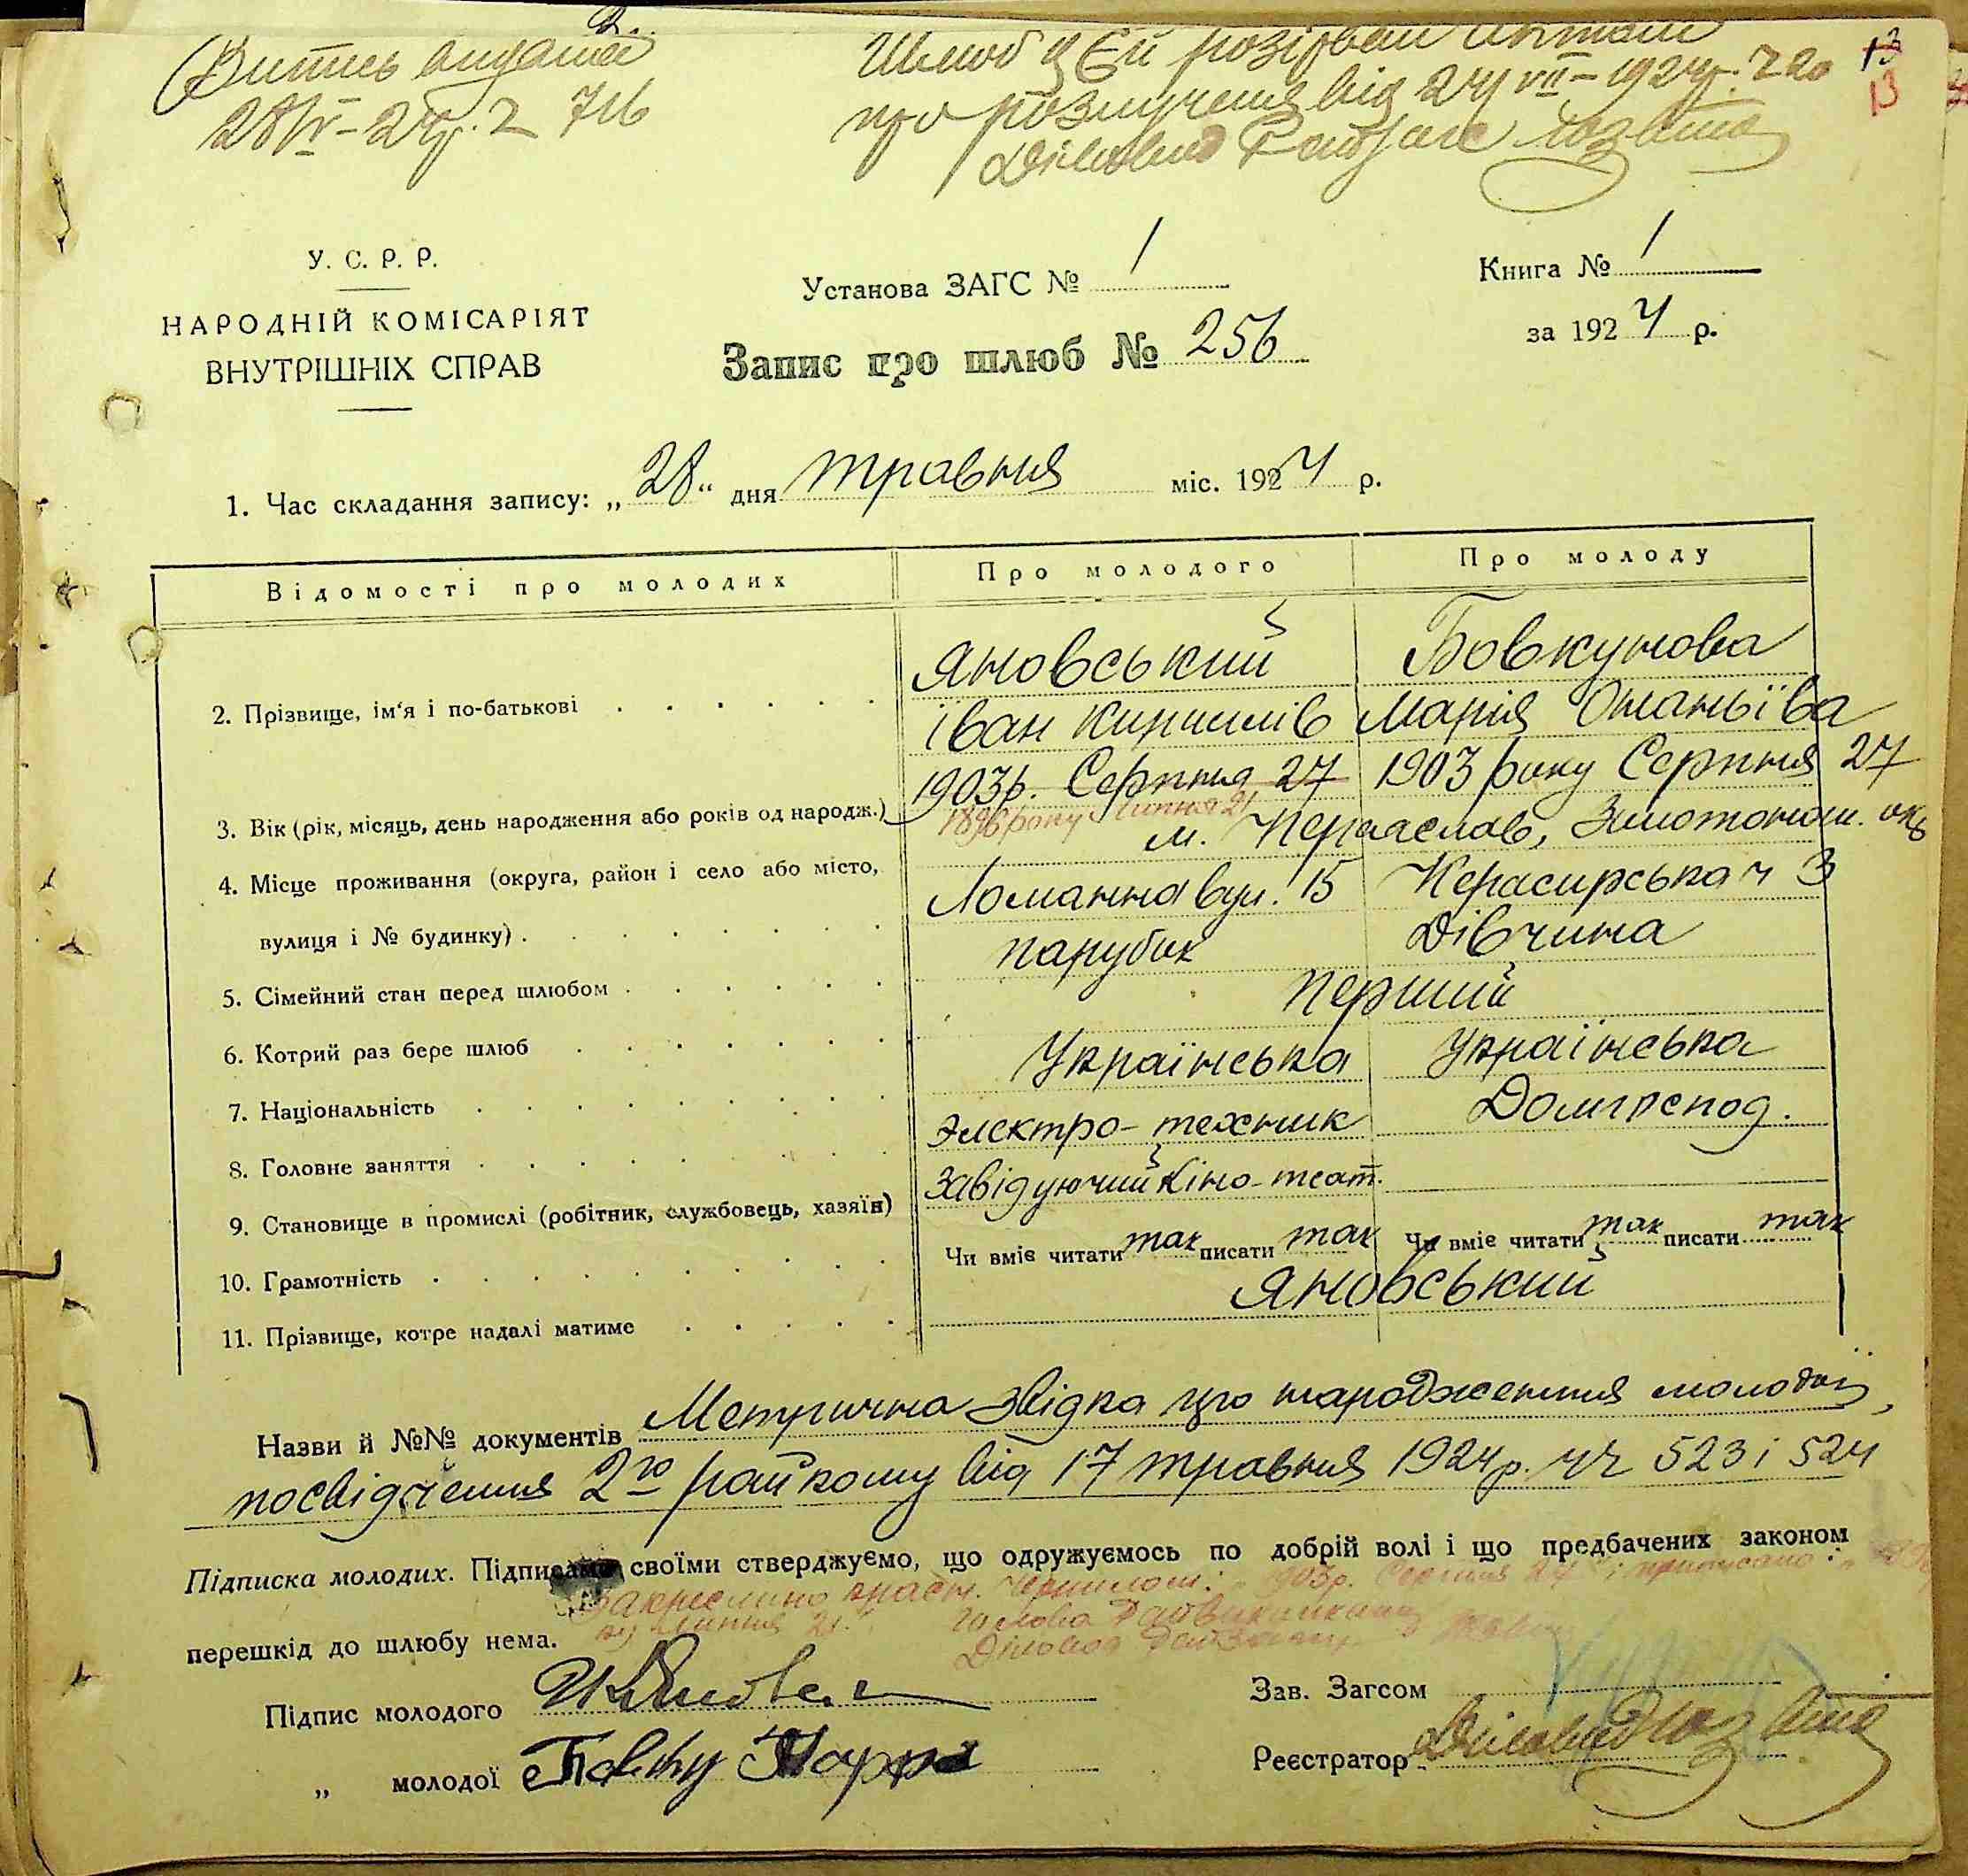 Витись видана
28/V-24р. 2 716
Шлюб цей розірван актом
про розлучення від 24 VII-1924р. 2 20
Діловод
13
13
У. С. Р. Р.
НАРОДНІЙ КОМІСАРІЯТ
ВНУТРІШНІХ СПРАВ
Установа ЗАГС № 1
Запис про шлюб № 256
Книга № 1
за 1924 р.
1. Час складання запису: „28“ дня травня міс. 1924 р.
Відомості про молодих Про молодого Про молоду
2. Прізвище, ім'я і по-батькові Яновський Бовкунова
Іван Кирилів Марія Ананьїва
3. Вік (рік, місяць, день народження або років од народж.) 1903р. Серпня 27 1903 року Серпня 27
1896 року Липня 21
4. Місце проживання (округа, район і село або місто, м. Переяслав, Золотонош. окр
вулиця і № будинку) Ломанна вул. 15 Керасирська ч 3
5. Сімейний стан перед шлюбом парубок Дівчина
6. Котрий раз бере шлюб Перший
7. Національність Українська Українська
8. Головне заняття Электро-технік Домгоспод.
9. Становище в промислі (робітник, службовець, хазяїн) Завідуючий Кіно-теат.
10. Грамотність Чи вміє читати так писати так Чи вміє читати так писати так
11. Прізвище, котре надалі матиме Яновський
Назви й №№ документів Метрична звідка про народження молодої,
посвідчення 2го райкому від 17 травня 1924р. чч 523 і 524
Підписка молодих. Підписами своїми стверджуємо, що одружуємось по добрій волі і що предбачених законом
Закреслино красн. чернилом: „1903р. Серпня 27“ і приписано: „1896
року Липня 21.“ Голова Райвиконкому
перешкід до шлюбу нема.
Діловод
Підпис молодого
Зав. Загсом
„ молодої Бовку Марія
Реєстратор Діловод